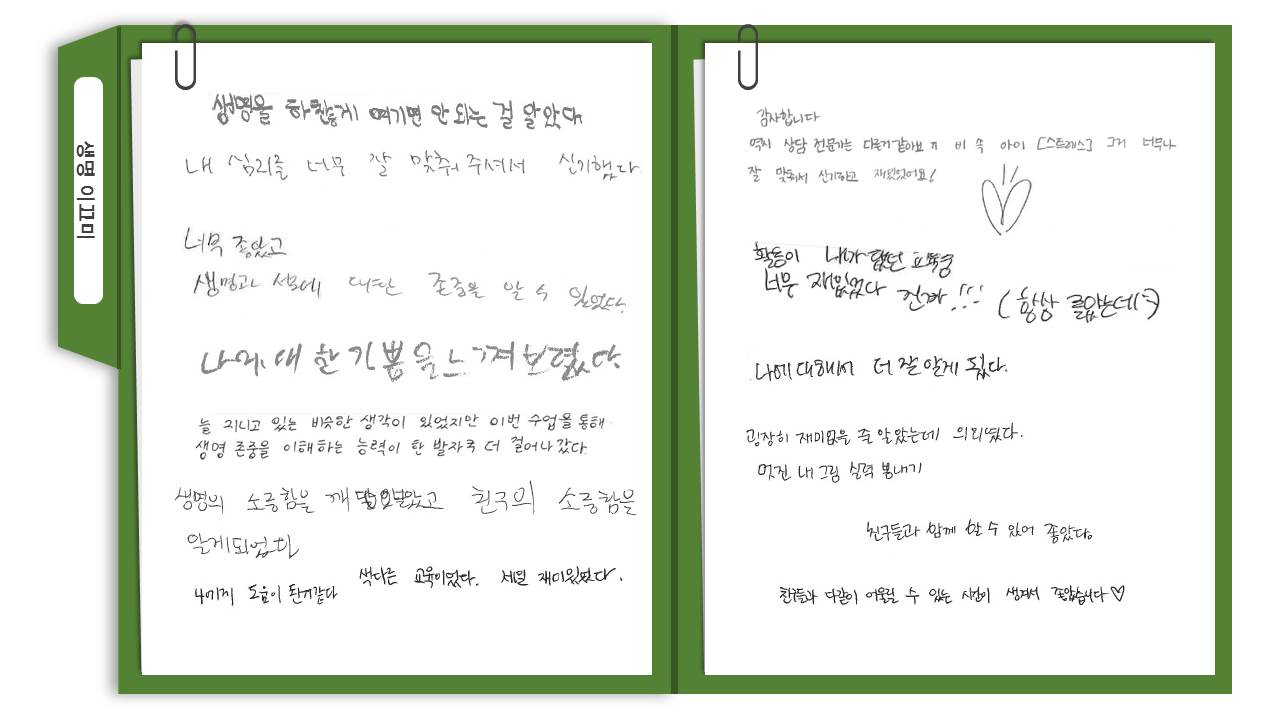 생명 이끄미
생명을 하찮게 여기면 안 되는 걸 알았다
내 심리를 너무 잘 맞춰 주셔서 신기했다
너무 좋았고
생명과 성에 대한 존중을 알 수 있었다.
나에 대한 기쁨을 느껴보렸다.
늘 지니고 있는 비슷한 생각이 있었지만 이번 수업을 통해
생명 존중을 이해하는 능력이 한 발자국 더 걸어나갔다.
생명의 소중함을 깨달았고 친구의 소중함을
알게되었다
나에게 도움이 된거같다
색다른 교육이었다. 세월 재미있었다.
감사합니다
역시 상담 전문가는 다른거같아요 ㅠ 비 속 아이 [스트레스] 그거 너무나
잘 맞춰서 신기하고 재밌었어요!
활동이 내가 했던 교육중
너무 재밌었다 진짜!!! (항상 졸았는데:)
나에 대해서 더 잘 알게 됐다.
굉장히 재미없을 줄 알았는데 의외였다.
멋진 내 그림 실력 뽐내기
친구들과 함께 할 수 있어 좋았다.
친구들과 다같이 어울릴 수 있는 시간이 생겨서 좋았습니다♡